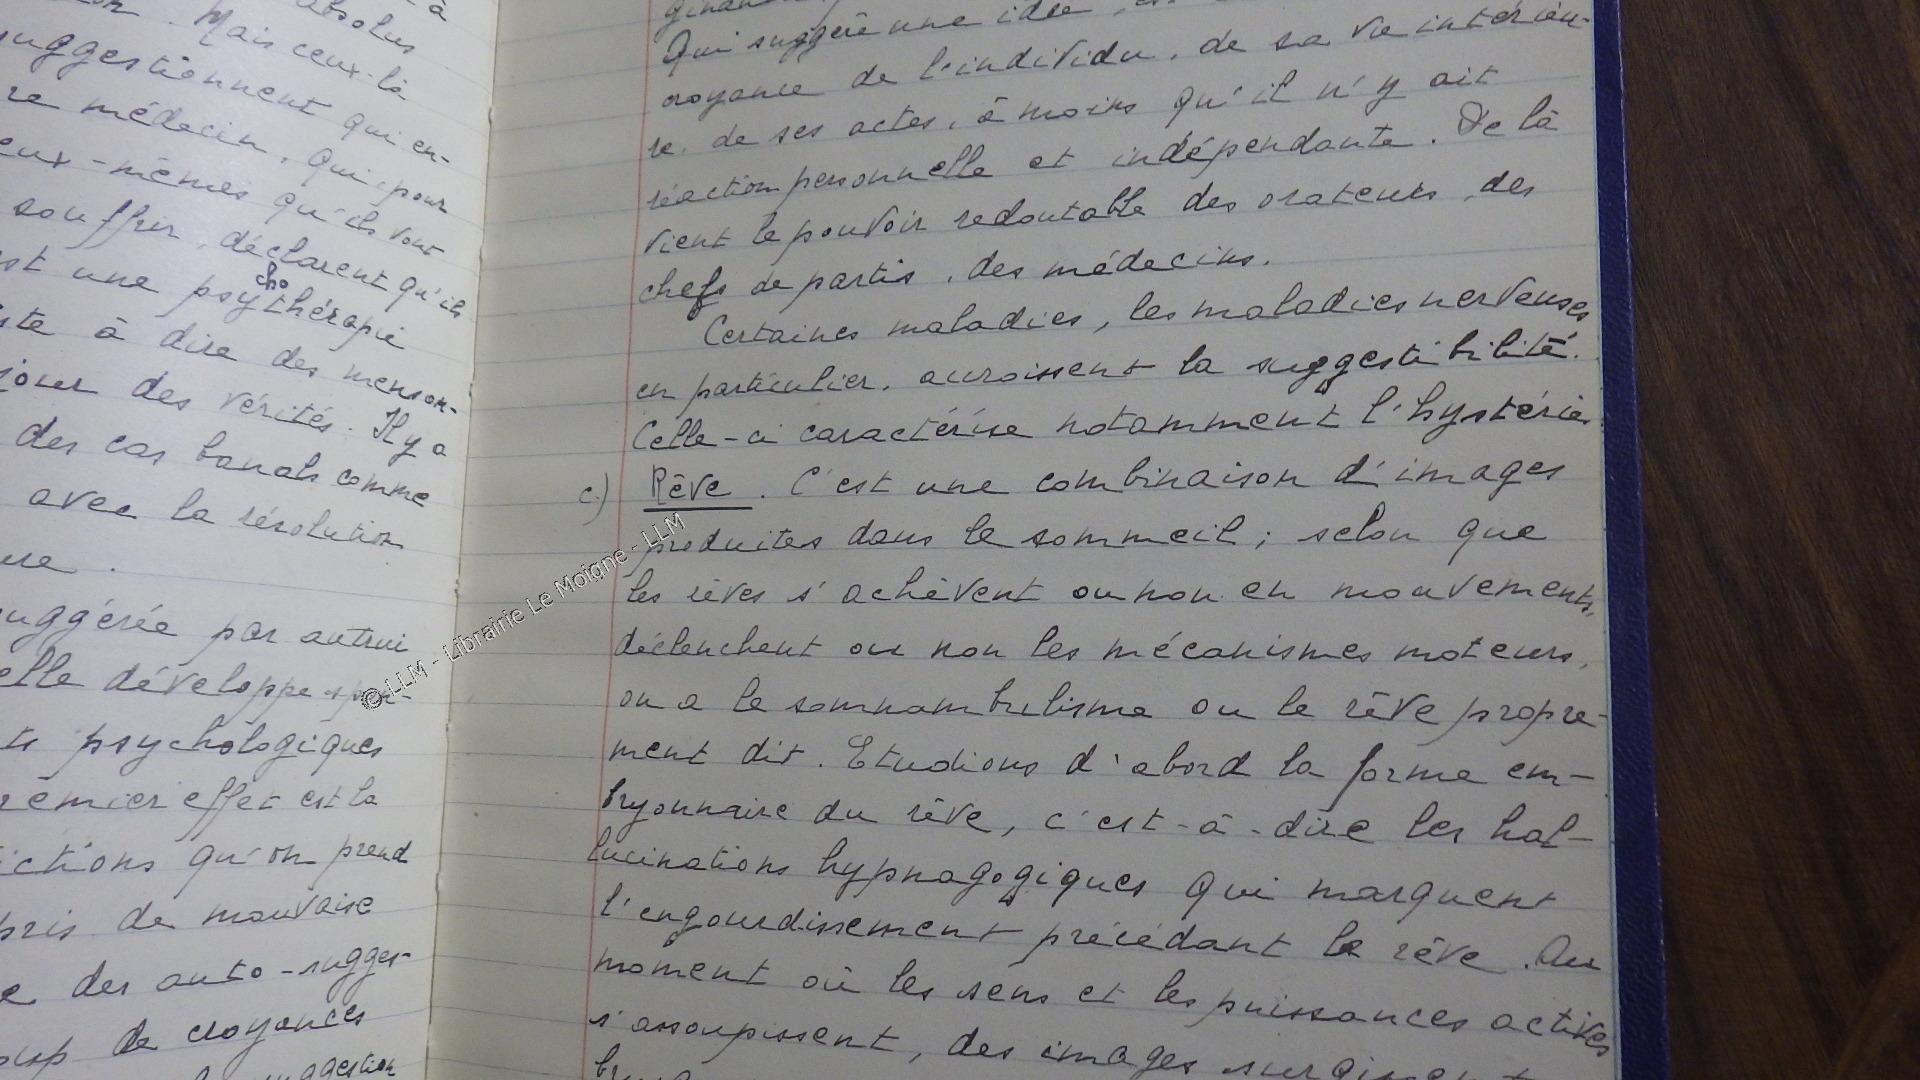 à
absolus
Mais ceux-là
suggestionnent qui en-
re médecin, qui, pour
eux-mêmes qu'ils vont
souffrir, déclarent qu'ils
st une psychothérapie
ste à dire des menson-
jour des vérités. Il y a
des cas banals comme
avec la résolution
ure.
suggérée par autrui
elle développe
ts psychologiques
premier effet est la
ictions qu'on prend
pris de mauvaise
e des auto-sugges-
oup de croyances
suggestion
Qui suggère une idée,
croyance de l'individu, de sa vie intérieu-
re, de ses actes, à moins qu'il n'y ait
réaction personnelle et indépendante. De là
vient le pouvoir redoutable des orateurs, des
chefs de partis, des médecins.
Certaines maladies, les maladies nerveuses
en particulier, accroissent la suggestibilité.
Celle-ci caractérise notamment l'hystérie.
c) Rêve. C'est une combinaison d'images
produites dans le sommeil; selon que
les rêves s'achèvent ou non en mouvements,
déclenchent ou non les mécanismes moteurs,
on a le somnambulisme ou le rêve propre-
ment dit. Etudions d'abord la forme em-
bryonnaire du rêve, c'est-à-dire les hal-
lucinations hypnagogiques qui marquent
l'engourdissement précédant le rêve. Au
moment où les sens et les puissances actives
s'assoupissent, des images surgissent
© LLM - Librairie Le Moigne - LLM